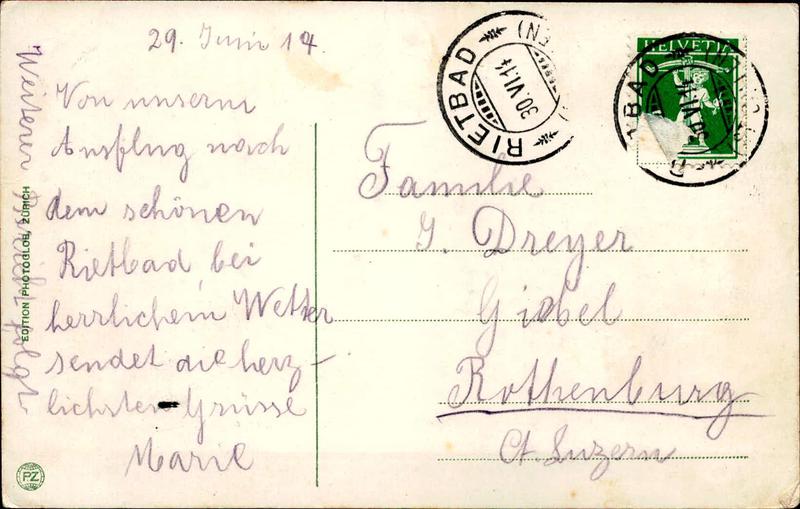 29. Juni 14.
Von unserm
Ausflug nach
dem schönen
Rietbad, bei
herrlichem Wetter
sendet die herz-
lichsten Grüsse
Marie
Weiterer Bericht folgt
EDITION PHOTOGLOB, ZÜRICH
PZ
RIETBAD
30.VI.14
HELVETIA
Familie
J. Dreyer
Giebel
Rothenburg
Ct. Luzern